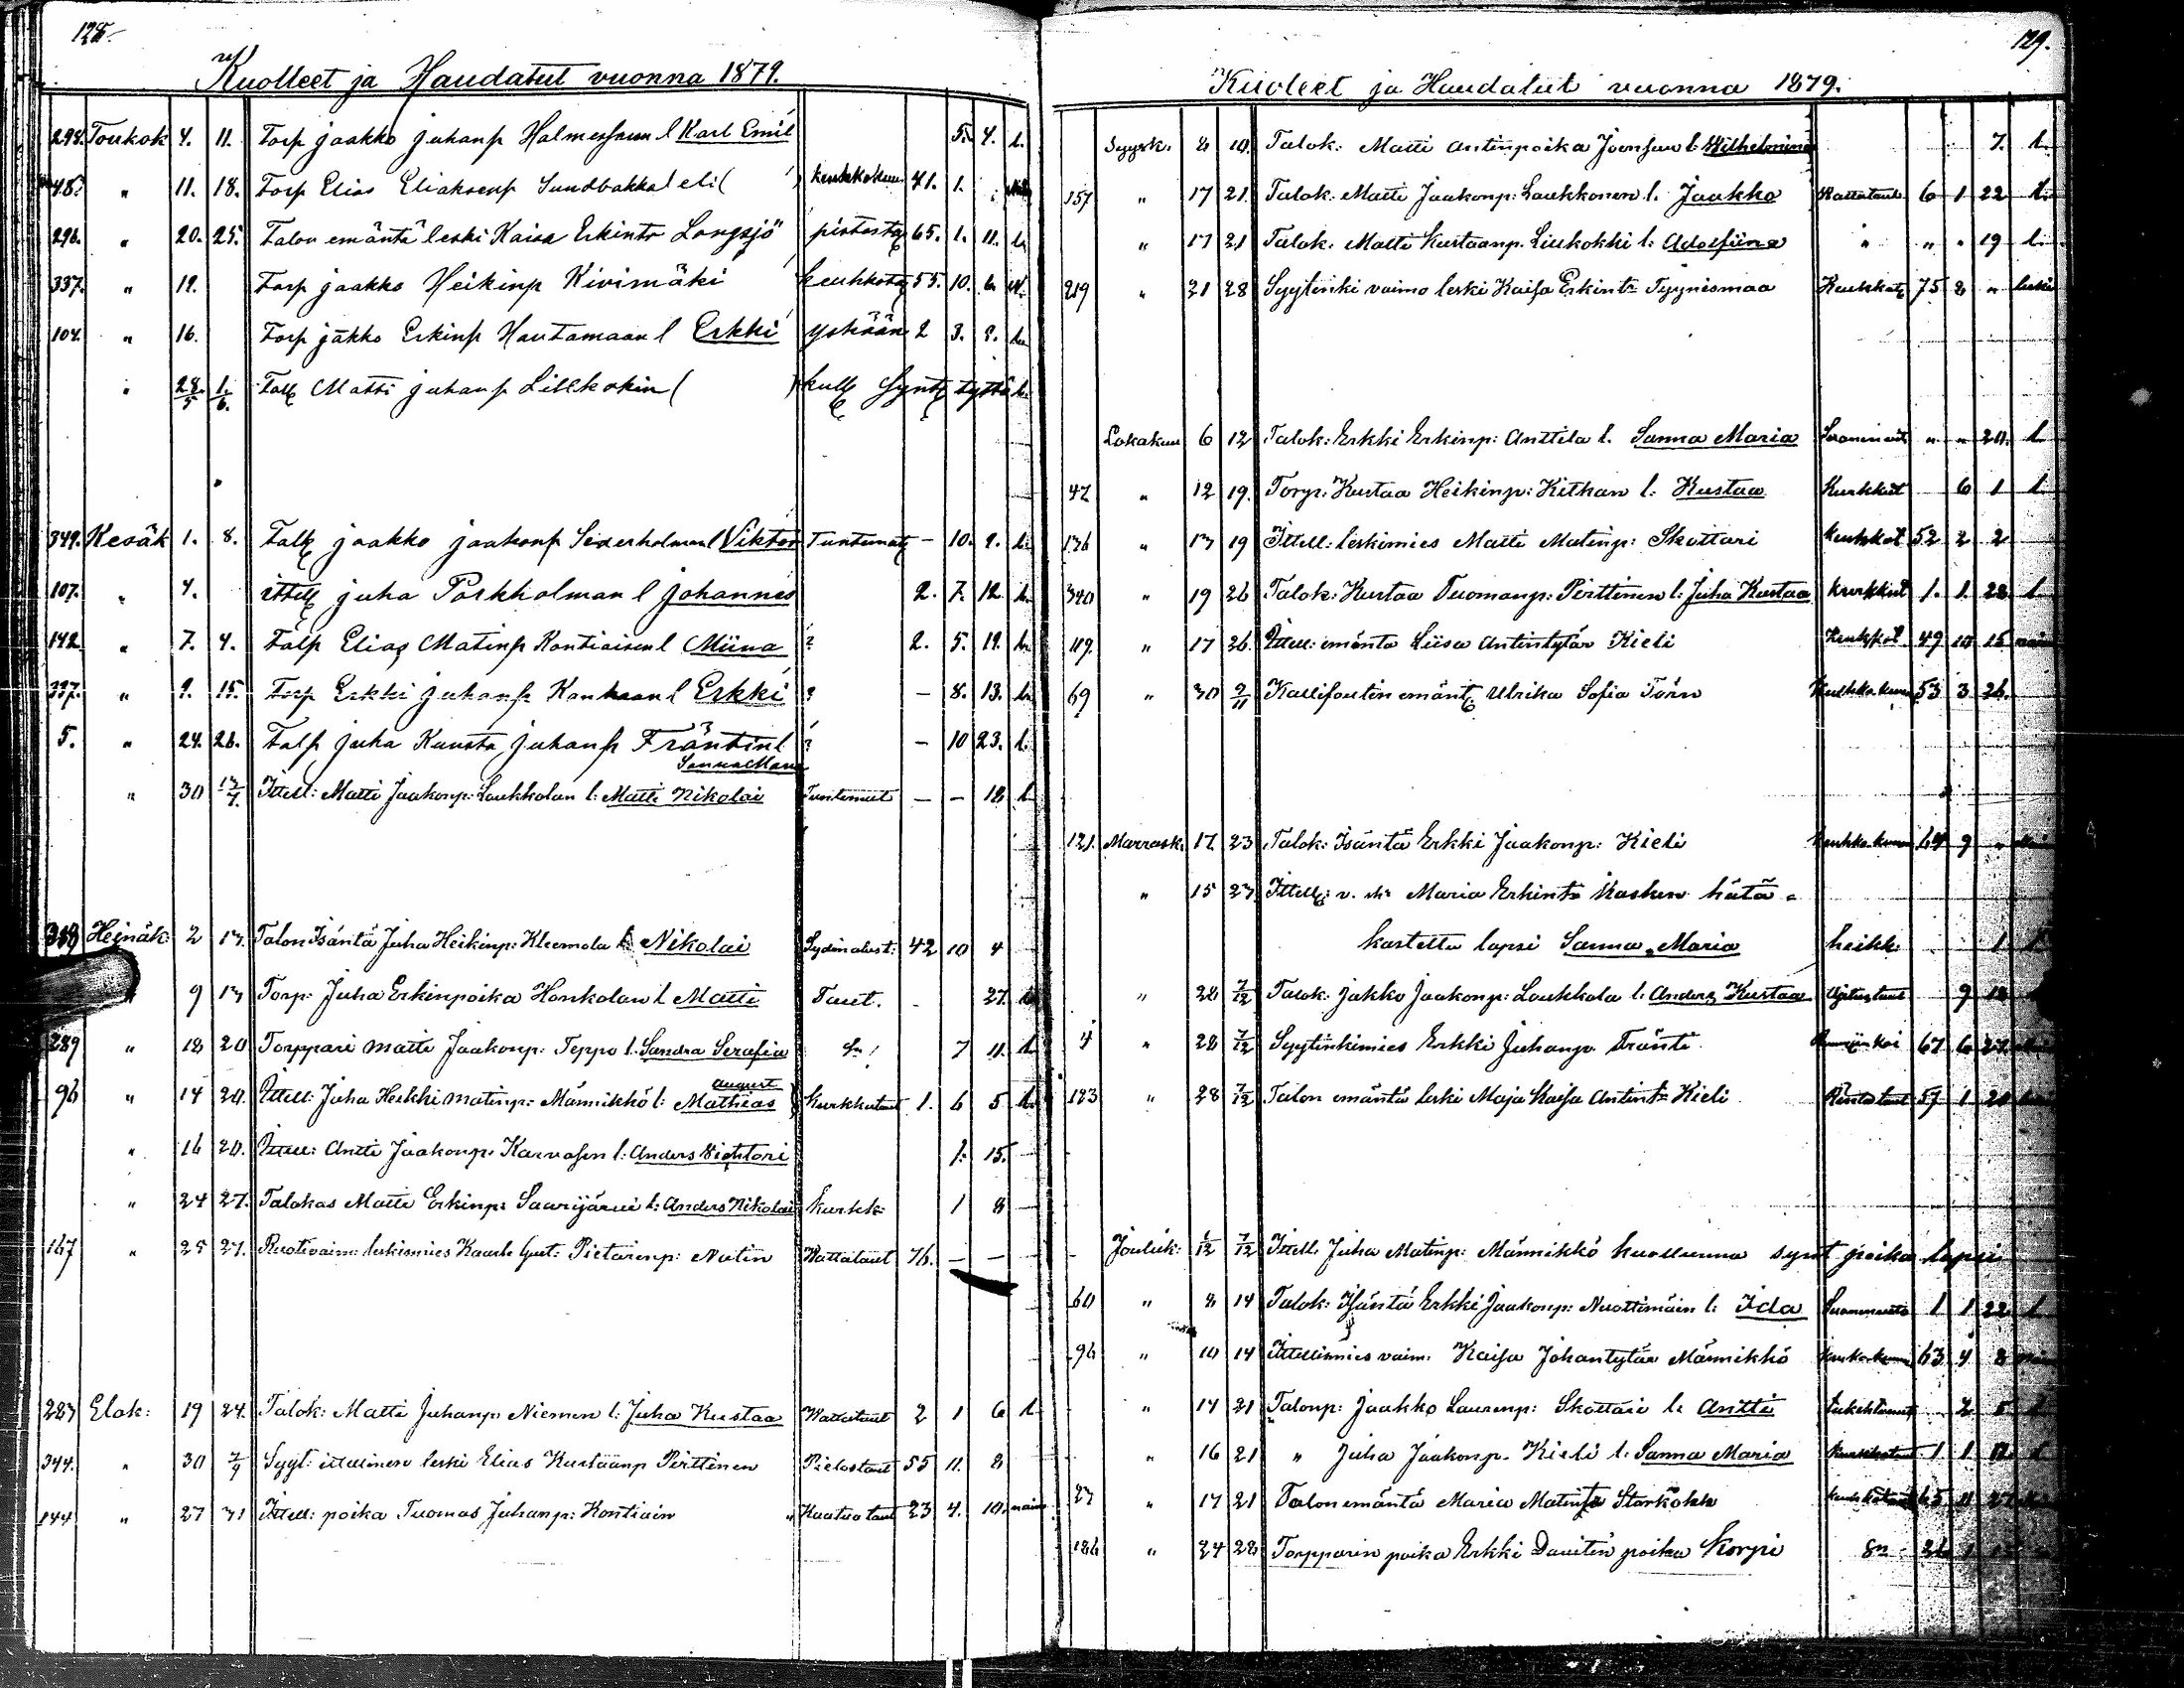 128.
Kuolleet ja Haudatut vuonna 1879.
298. Toukok 4. 11. Torp jaakko juhanp Holmessum l Karl Emil 5. 4. l.
48. " 11. 18. Torp Elias Eliaksenp Sundbakka l eli ( ) keuhkokuu 41. 1.
296. " 20. 25. Talon emäntä leski Kaisa Erkintr Longsjö pistosta 65. 1. 11. l.
337. " 12. Torp jaakko Heikinp Kivimäki keuhkota 55. 10. 6.
104. " 16. Torp jakko Erkinp Hautamaan l Erkki yskään 2 3. 2. l.
" 28/5 1/6. Talk Matti juhanp Lillkokin ( ) kull synt tyttö l.
349. Kesäk 1. 8. Talk jaakko jaakonp Sederholman l Viktor Tuntemat - 10. 2. l.
107. " 4. ittell juha Porkholman l johannes 2. 7. 12. l.
142. " 7. 4. Talp Elias Matinp Kontiaisen l Miina ? 2. 5. 19. l.
337. " 9. 15. Torp Erkki juhanp Kankaan l Erkki ? - 8. 13. l.
5. " 24. 26. Talp juha Kuusta juhanp Fräntin l ? - 10 23. l.
Sanna Maria
" 30 13/7. Ittell: Matti Jaakonp: Laukkolan l: Matti Nikolai Tuntemat - - 18 l.
319 Heinäk: 2 13. Talon Isäntä Juha Heikinp: Kleemola Nikolai Sydinalust: 42 10 4
" 9 13 Torp: Juha Erkinpoika Honkolan l Matti Taut. - 27. l.
289 " 18 20 Torppari Matti Jaakonp: Teppo l: Sandra Serafia 7 11. l.
August
96 " 14 20. Ittell: Juha Herkki Matinp: Männikkö l: Mathias Kurkkutaut 1. 6 5 l.
" 16 20. Ittell: Antti Jaakonp: Karvosen l: Anders Vichtori 1. 15.
" 24 27. Talokas Matti Erkinp: Saarijärvi l: Anders Nikolai kurkk: 1 8
167 " 25 27. Ruotivaim: leskimies Kaarle Gust: Pietarinp: Nutin Wattataut 76. - -
283 Elok: 19 24. Talok: Matti Juhanp: Niemen l: Juha Kustaa Wattataut 2 1 6 l.
344. " 30 7/9 Syyt: ittellinen leski Elias Kustaanp Pirttinen Pielostaut 55 11. 8
144 " 27 31 Ittell: poika Tuomas Juhanp: Kontiain " Kaatuvataut 23 4. 10. naim
129.
Kuoleet ja Haudatut vuonna 1879.
Syysk. 8 10. Talok: Matti Antinpoika Joensuu l: Wilhelmina 7. l.
157 " 17 21. Talok: Matti Jaakonp: Laukkonen l. Jaakko Wattataut 6 1 22 l.
" 17 21 Talok: Matti Kustaanp. Liukokki l: Adolfiina " " " 19 l.
219 " 21 28 Syytinki vaimo leski Kaisa Erkintr Tyynismaa Keuhkot 75 2 " leski
Lokakuu 6 12 Talok: Erkki Erkinp: Anttila l. Sanna Maria " " 20. l.
47 " 12 19. Torp: Kustaa Heikinp: Kitkan l: Kustaa Kurkkut 6 1 l.
136 " 13 19 Ittell: leskimies Matti Matinp: Skottari keuhkot 52 2 2
340 " 19 26 Talok: Kustaa Tuomanp: Pirttinen l: Juha Kustaa kurkkut 1. 1. 22. l.
119. " 17 26. Ittell: emäntä Liisa Antintytär Kieli Keuhkot 49 10 15
69 " 30 2/11 Kallisoutin emänt: Ulrika Sofia Törn Keuhko kuum 53 3 26.
121. Marrask. 17. 23 Talok: Isäntä Erkki Jaakonp: Kieli Keuhko kuum 64 9 "
" 15 23 Ittell: v. Maria Erkintr Kosken hätä-
kastettu lapsi Sanna Maria heikk: 1
" 28 7/12 Talok: Jakko Jaakonp: Laukkola l: Anders Kustaa Ajetustaut 9 12
4 " 28 7/12 Syytinkimies Erkki Juhanp Fränti 67 6 27
123 " 28 7/12 Talon emäntä leski Maja Kaisa Antintr Kieli Rintataut 57 1 20
Jouluk: 1/12 7/12 Ittell: Juha Matinp: Männikkö kuolluna synt poika lapsi
60 " 8 14 Talok: Isäntä Erkki Jaakonp: Nuottimäin l: Ida 1 1 22 l
96 " 10 14 Ittellimies vaim: Kaisa Johantytär Männikkö 63 4 8
" 14 21 Talonp: Jaakko Laurinp: Skottari l: Antti tukehtumut 2 5 l
" 16 21 " Juha Jaakonp. Kieli l: Sanna Maria Kurkkutaut 1 1 12 l
27 " 17 21 Talon emäntä Maria Matintr Storkåkk 65 11 27
186 " 24 28 Torpparin poika Erkki Dauitin poika Korpi 26 1